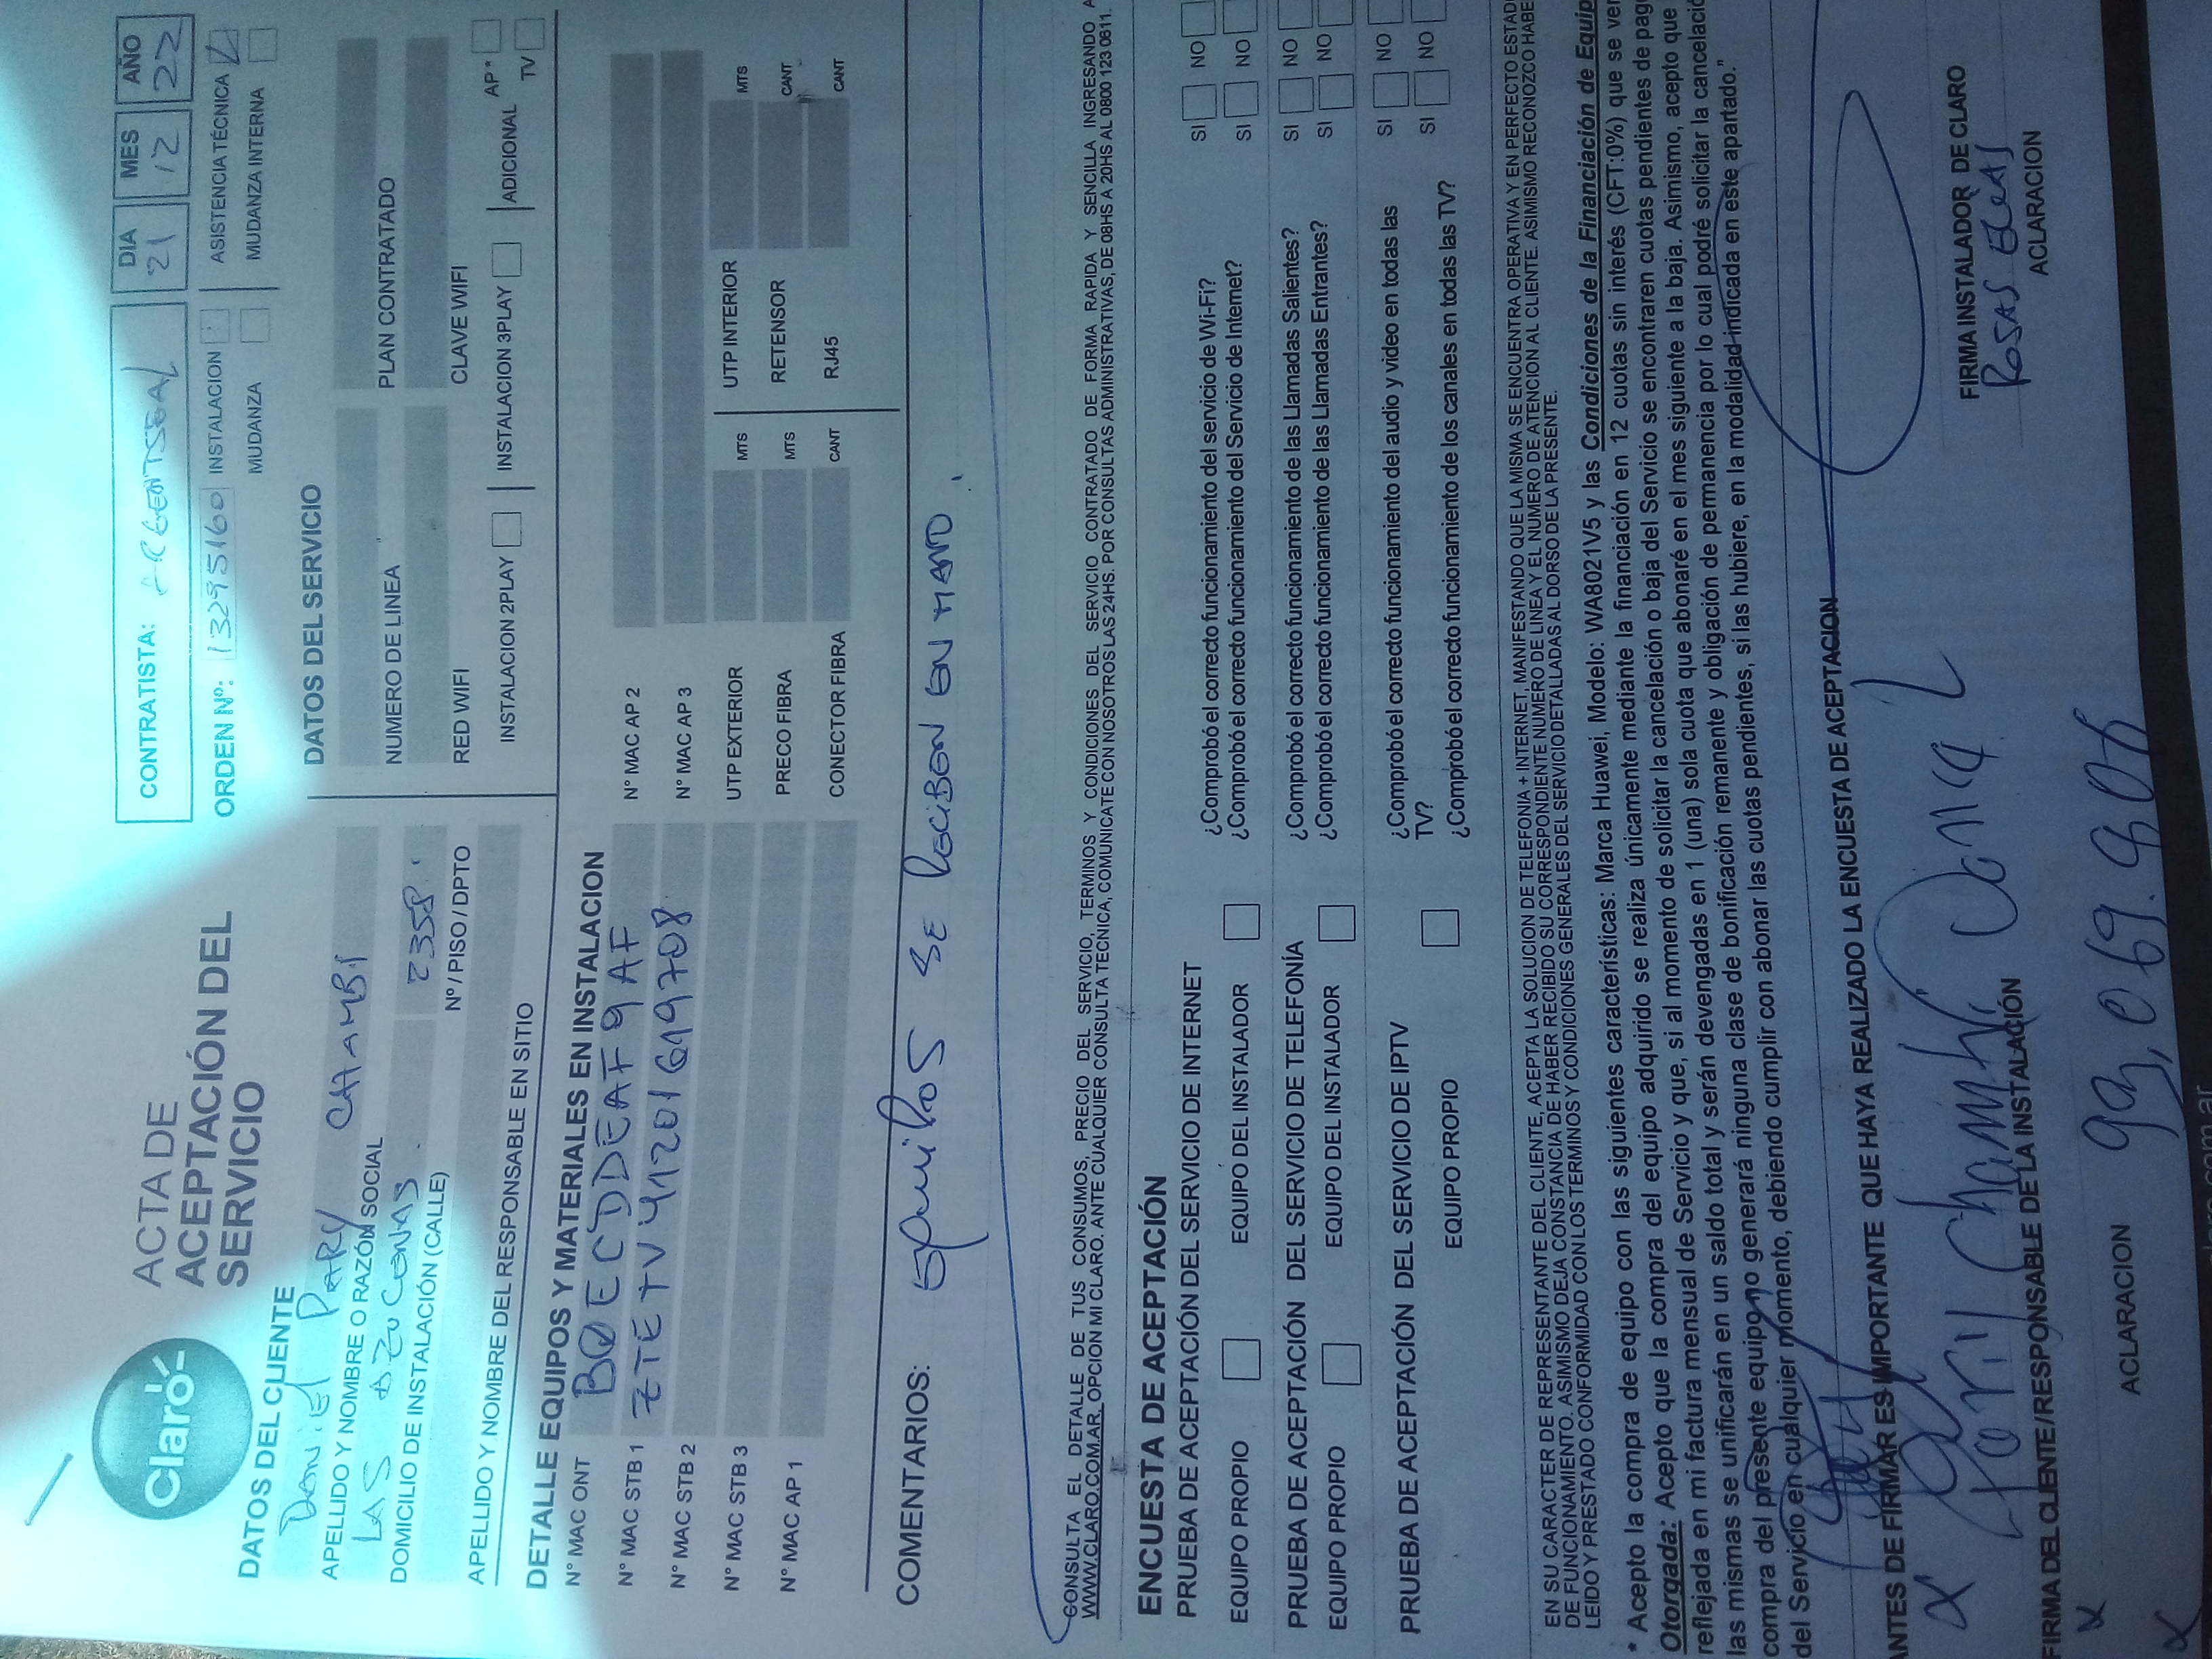 Claro
ACTA DE
ACEPTACIÓN DEL
SERVICIO
CONTRATISTA: ARGENTSEAL
DIA MES AÑO
21 12 22
ORDEN Nº: 13295160 INSTALACION ASISTENCIA TÉCNICA
MUDANZA MUDANZA INTERNA
DATOS DEL CLIENTE
DANIEL PARY CHAMBI
APELLIDO Y NOMBRE O RAZÓN SOCIAL
LAS AZUCENAS 2358
DOMICILIO DE INSTALACIÓN (CALLE) Nº / PISO / DPTO
APELLIDO Y NOMBRE DEL RESPONSABLE EN SITIO
DATOS DEL SERVICIO
NUMERO DE LINEA PLAN CONTRATADO
RED WIFI CLAVE WIFI
INSTALACION 2PLAY INSTALACION 3PLAY ADICIONAL AP *
TV
DETALLE EQUIPOS Y MATERIALES EN INSTALACION
N° MAC ONT B0ECDDEAF9AF
N° MAC STB 1 ZTETV41201619708
N° MAC STB 2
N° MAC STB 3
N° MAC AP 1
N° MAC AP 2
N° MAC AP 3
UTP EXTERIOR MTS UTP INTERIOR MTS
PRECO FIBRA MTS RETENSOR CANT
CONECTOR FIBRA CANT RJ45 CANT
COMENTARIOS: EQUIPOS SE RECIBEN EN MANO.
CONSULTA EL DETALLE DE TUS CONSUMOS, PRECIO DEL SERVICIO, TERMINOS Y CONDICIONES DEL SERVICIO CONTRATADO DE FORMA RAPIDA Y SENCILLA INGRESANDO A
WWW.CLARO.COM.AR, OPCION MI CLARO. ANTE CUALQUIER CONSULTA TECNICA, COMUNICATE CON NOSOTROS LAS 24HS. POR CONSULTAS ADMINISTRATIVAS, DE 08HS A 20HS AL 0800 123 0611.
ENCUESTA DE ACEPTACIÓN
PRUEBA DE ACEPTACIÓN DEL SERVICIO DE INTERNET
EQUIPO PROPIO EQUIPO DEL INSTALADOR
¿Comprobó el correcto funcionamiento del servicio de Wi-Fi? SI NO
¿Comprobó el correcto funcionamiento del Servicio de Internet? SI NO
PRUEBA DE ACEPTACIÓN DEL SERVICIO DE TELEFONÍA
EQUIPO PROPIO EQUIPO DEL INSTALADOR
¿Comprobó el correcto funcionamiento de las Llamadas Salientes? SI NO
¿Comprobó el correcto funcionamiento de las Llamadas Entrantes? SI NO
PRUEBA DE ACEPTACIÓN DEL SERVICIO DE IPTV
EQUIPO PROPIO
¿Comprobó el correcto funcionamiento del audio y video en todas las SI NO
TV?
¿Comprobó el correcto funcionamiento de los canales en todas las TV? SI NO
EN SU CARACTER DE REPRESENTANTE DEL CLIENTE, ACEPTA LA SOLUCION DE TELEFONIA + INTERNET, MANIFESTANDO QUE LA MISMA SE ENCUENTRA OPERATIVA Y EN PERFECTO ESTAD
DE FUNCIONAMIENTO. ASIMISMO DEJA CONSTANCIA DE HABER RECIBIDO SU CORRESPONDIENTE NUMERO DE LINEA Y EL NUMERO DE ATENCION AL CLIENTE. ASIMISMO RECONOZCO HABE
LEIDO Y PRESTADO CONFORMIDAD CON LOS TERMINOS Y CONDICIONES GENERALES DEL SERVICIO DETALLADAS AL DORSO DE LA PRESENTE.
* Acepto la compra de equipo con las siguientes características: Marca Huawei, Modelo: WA8021V5 y las Condiciones de la Financiación de Equip
Otorgada: Acepto que la compra del equipo adquirido se realiza únicamente mediante la financiación en 12 cuotas sin interés (CFT:0%) que se ver
reflejada en mi factura mensual de Servicio y que, si al momento de solicitar la cancelación o baja del Servicio se encontraren cuotas pendientes de pag
las mismas se unificarán en un saldo total y serán devengadas en 1 (una) sola cuota que abonaré en el mes siguiente a la baja. Asimismo, acepto que
compra del presente equipo no generará ninguna clase de bonificación remanente y obligación de permanencia por lo cual podré solicitar la cancelació
del Servicio en cualquier momento, debiendo cumplir con abonar las cuotas pendientes, si las hubiere, en la modalidad indicada en este apartado."
ANTES DE FIRMAR ES IMPORTANTE QUE HAYA REALIZADO LA ENCUESTA DE ACEPTACION
X Pary Chambi
FIRMA DEL CLIENTE/RESPONSABLE DE LA INSTALACIÓN
FIRMA INSTALADOR DE CLARO
ROSAS ELIAS
ACLARACION
X
ACLARACION 93,069.806
X